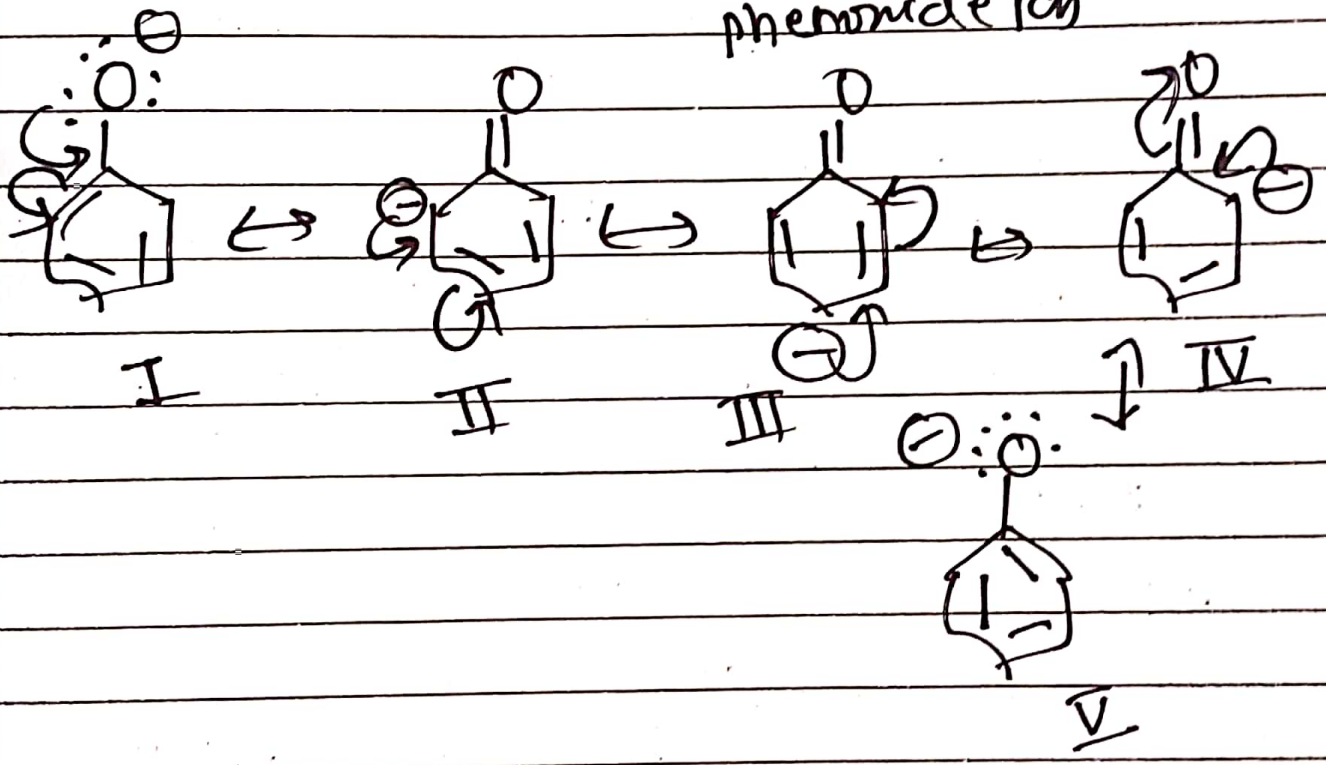 phemonide ion
⊖
:O: O O O
⊖ ⊖
I II ⊖ III IV
⊖ :O:
V